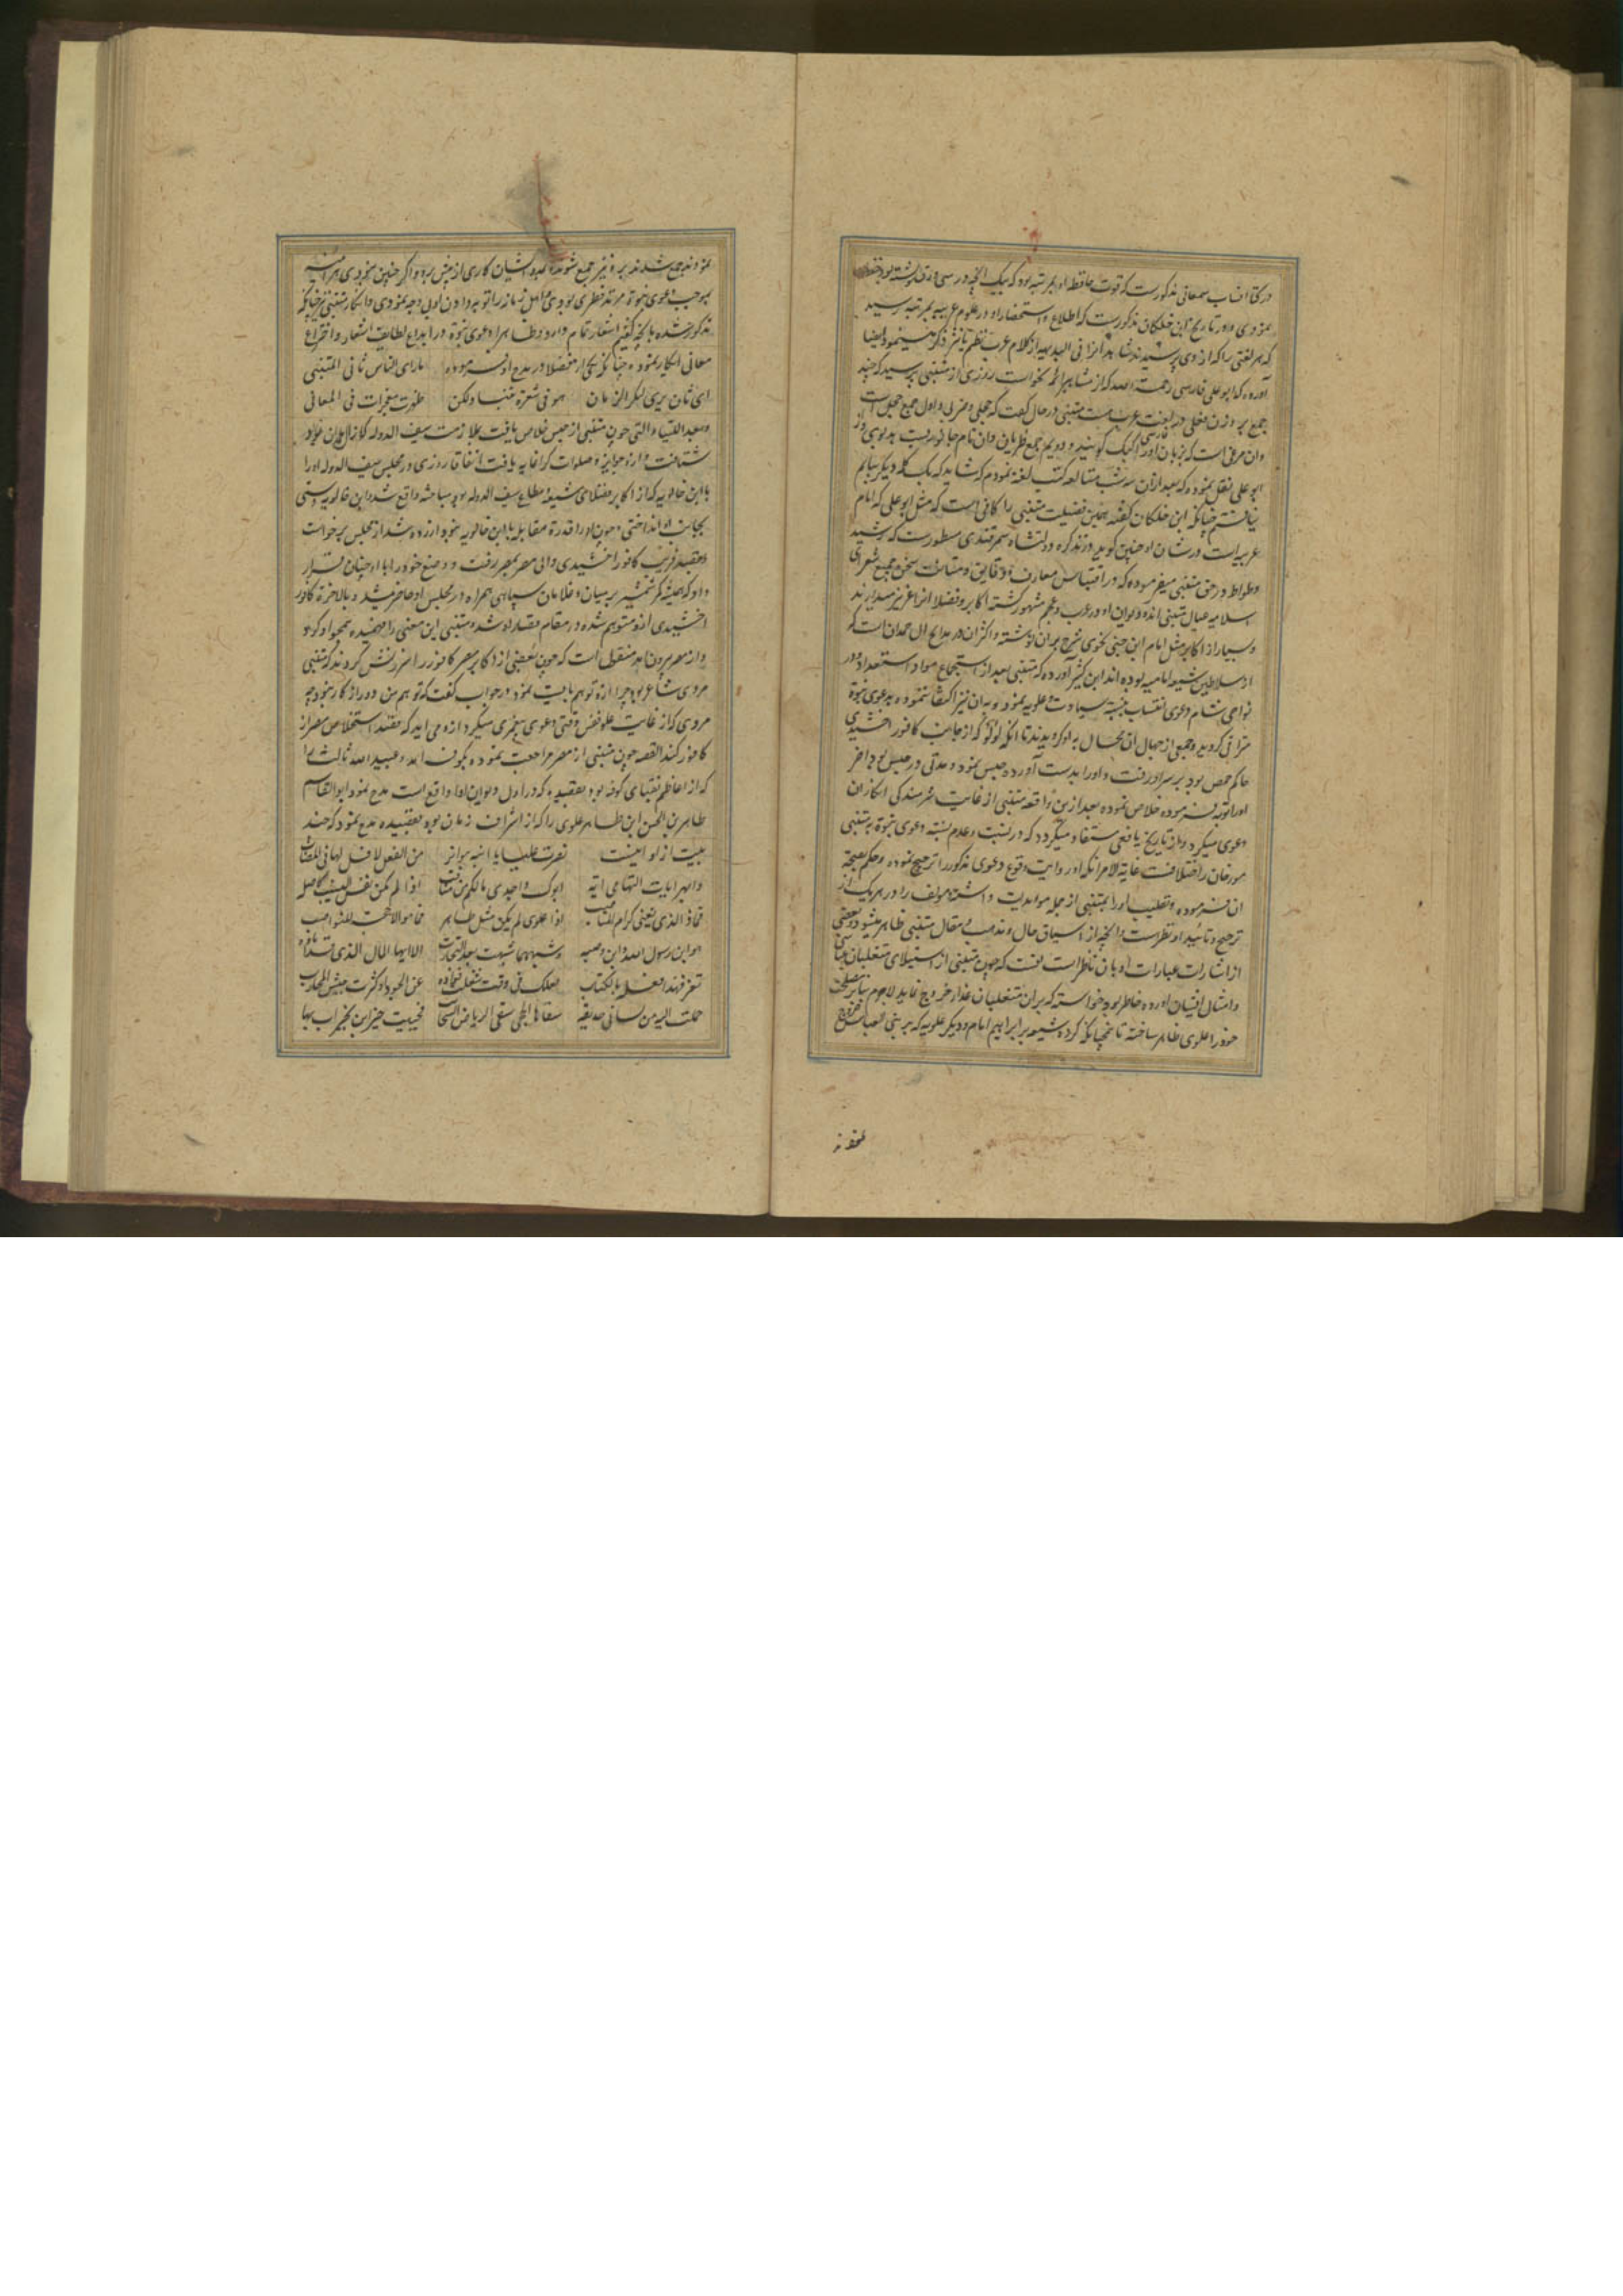 در کتاب انساب سمعانی مذکورست که قوت حافظه او بمرتبه بود که بیک انچه در سی ورق نوشته بود حفظ
نمودی و در تاریخ ابن خلکان مذکورست که اطلاع و استحضار او در علوم عربیه بمرتبه رسید
که هر لغتی را که از وی پرسیدند شاهد انرا فی البدیهه از کلام عرب نظم یا نثر ذکر مینمود ایضا
آورده که ابو علی فارسی رحمة الله که از مشاهیر ائمه نحو است روزی از متنبی پرسید که چند
جمع بر وزن فعلی در لغت عرب هست متنبی در حال گفت که حجلی و ظربی و اول جمع حجل است
وان مرغی است که بزبان فارسی اورا کبک گویند و دویم جمع ظربان وان نام جانوریست بدبوی
ابو علی نقل نموده که بعد ازان سه شب مطالعه کتب لغة نمودم که شاید که یک کلمه دیگر بیابم
نیافتم چنانکه ابن خلکان گفته همین فضیلت متنبی را کافی است که مثل ابو علی که امام
عربیه است در شان او چنین گوید و در تذکره دولتشاه سمرقندی مسطورست که رشید
وطواط در حق متنبی میفرموده که در اقتباس معارف و دقایق و متانت سخن جمیع شعرای
اسلامیه عیال متنبی اند و دیوان او در عرب و عجم مشهور گشته اکابر و فضلا انرا عزیز میدارند
و بسیار از اکابر مثل امام ابن جنی نحوی شرح بران نوشته و اکثر ان در مدایح ال حمدان است که
از سلاطین شیعه امامیه بوده اند ابن کثیر آورده که متنبی بعد از استجماع مواد استعداد در
نواحی شام دعوی انتساب بنسبة سیادت علویه نمود و بدان نیز اکتفا ننموده بدعوی نبوة
مترا فی گردید و جمعی از جهال ان محال به او گرویدند تا انکه لولو که از جانب کافور اخشیدی
حاکم حمص بود بر سر او رفت و اورا بدست آورده حبس نمود و مدتی در حبس بود اخر
اورا توبه فرموده خلاص نموده بعد ازین واقعه متنبی از غایت شرمندگی انکار ان
دعوی میکرد و از تاریخ یافعی مستفاد میگردد که در نسبت و عدم نسبة دعوی نبوة به متنبی
مورخان را اختلافست غایة الامر انکه او روایت وقوع دعوی مذکور را ترجیح نموده و حکم بصحة
ان فرموده و تلقیب اورا بمتنبی از جمله مویدات داشته و مولف را در هر یک از
ترجیح و تایید او نظر است و انچه از سیاق حال و مذهب و مقال متنبی ظاهر میشود و بعضی
از اشارات عبارات او بان ناظر است انست که چون متنبی از استیلای متغلبان
وامثال ایشان آزرده خاطر بود و خواسته که بران متغلبان غدار خروج نماید لاجرم بنابر مصلحت
خود را علوی ظاهر ساخته تا همچنانکه گروه شیعه بر ابراهیم امام و دیگر علویه که بر بنی العباس خروج
نمودند
نمودند جمع شدند برو نیز جمع شوند و بمدد ایشان کاری از پیش برد و اگر چنین نبودی هر اینه
بموجب دعوی نبوة مرتد فطری بودی و اهل زمان را توبه دادن اولی وجه نمودی و انکار متنبی نیز چنانکه
مذکور شده با انچه گفتیم اشعار تمام دارد و ظاهرا دعوی نبوة در ابداع لطایف اشعار و اختراع
معانی ابکار نموده چنانکه یکی از فضلا در مدح او فرموده ما رای الناس ثانی المتنبی
ای ثان یری لبکر الزمان هو فی شعره تنبا ولکن ظهرت معجزات فی المعانی
وبعد اللتیا والتی چون متنبی از حبس خلاص یافت بملازمت سیف الدوله که از ال حمدان بود
شتافت و ازو جوایز و صلوات گرانمایه یافت اتفاقا روزی در مجلس سیف الدوله اورا
با ابن خالویه که از اکابر فضلای شیعه و مطاع سیف الدوله بود مباحثه واقع شد ابن خالویه دستی
بجانب او انداخت و چون اورا قدرة مقابله با ابن خالویه نبود ازرده شد از مجلس برخواست
و بقصد قریب کافور اخشیدی والی مصر بمصر رفت و وضع خود را با او چنان قرار
داد که همیشه کمر شمشیر بر میان و غلامان سپاهی همراه در مجلس او حاضر میشد و بالاخره کافور
اخشیدی ازو متوهم شده در مقام قصد او شده متنبی این معنی را فهمیده هجو او کرد
و از مصر بیرون آمد منقولست که چون بعضی از اکابر مصر کافور را سرزنش کردند که متنبی
مردی شاعر بود چرا ازو توهم بایست نمود در جواب گفت که توهم من دور از کار نبود چه
مردی که از غایت علو نفس وقتی دعوی پیغمبری میکرد ازو می اید که قصد استخلاص مصر از
کافور کند القصه چون متنبی از مصر مراجعت نموده بکوفه امد و عبید الله ثالث را
که از اعاظم نقبای کوفه بود بقصیده که در اول دیوان او واقع است مدح نمود و ابو القاسم
طاهر بن الحسن ابن طاهر علوی را که از اشراف زمان بود بقصیده مدح نمود که چند
بیت ازو اینست نصرت علیا یا ابنه ببواتر من الفعل لا فل لها فی المضارب
وابهر ایات التهامی انه ابوک واجدی مالکم من مناقب اذا لم تکن نفس النسیب کاصله
فماذا الذی یغنی کرام المناصب اذا علوی لم یکن مثل طاهر فما هو الا حجة للنواصب
هو ابن رسول الله وابن وصیه وشبههما شبهت بعد التجارب الا ایها المال الذی قد اباده
تعز فهذا فعله بالکتائب لعلک فی وقت شغلت فواده عن الجود او کثرت جیش محارب
حملت الیه من لسانی حدیقة سقاها الحجی سقی الریاض السحائب فحییت خیر ابن لخیر اب بها